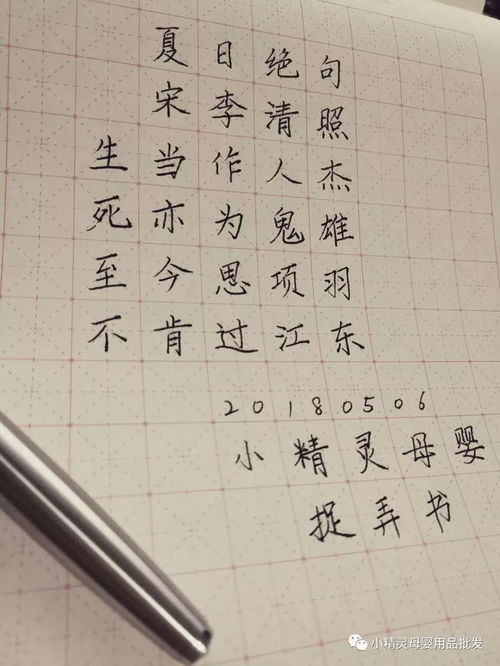 夏日绝句
宋李清照
生当作人杰
死亦为鬼雄
至今思项羽
不肯过江东
20180506
小精灵母婴
捉弄书
小精灵母婴用品批发